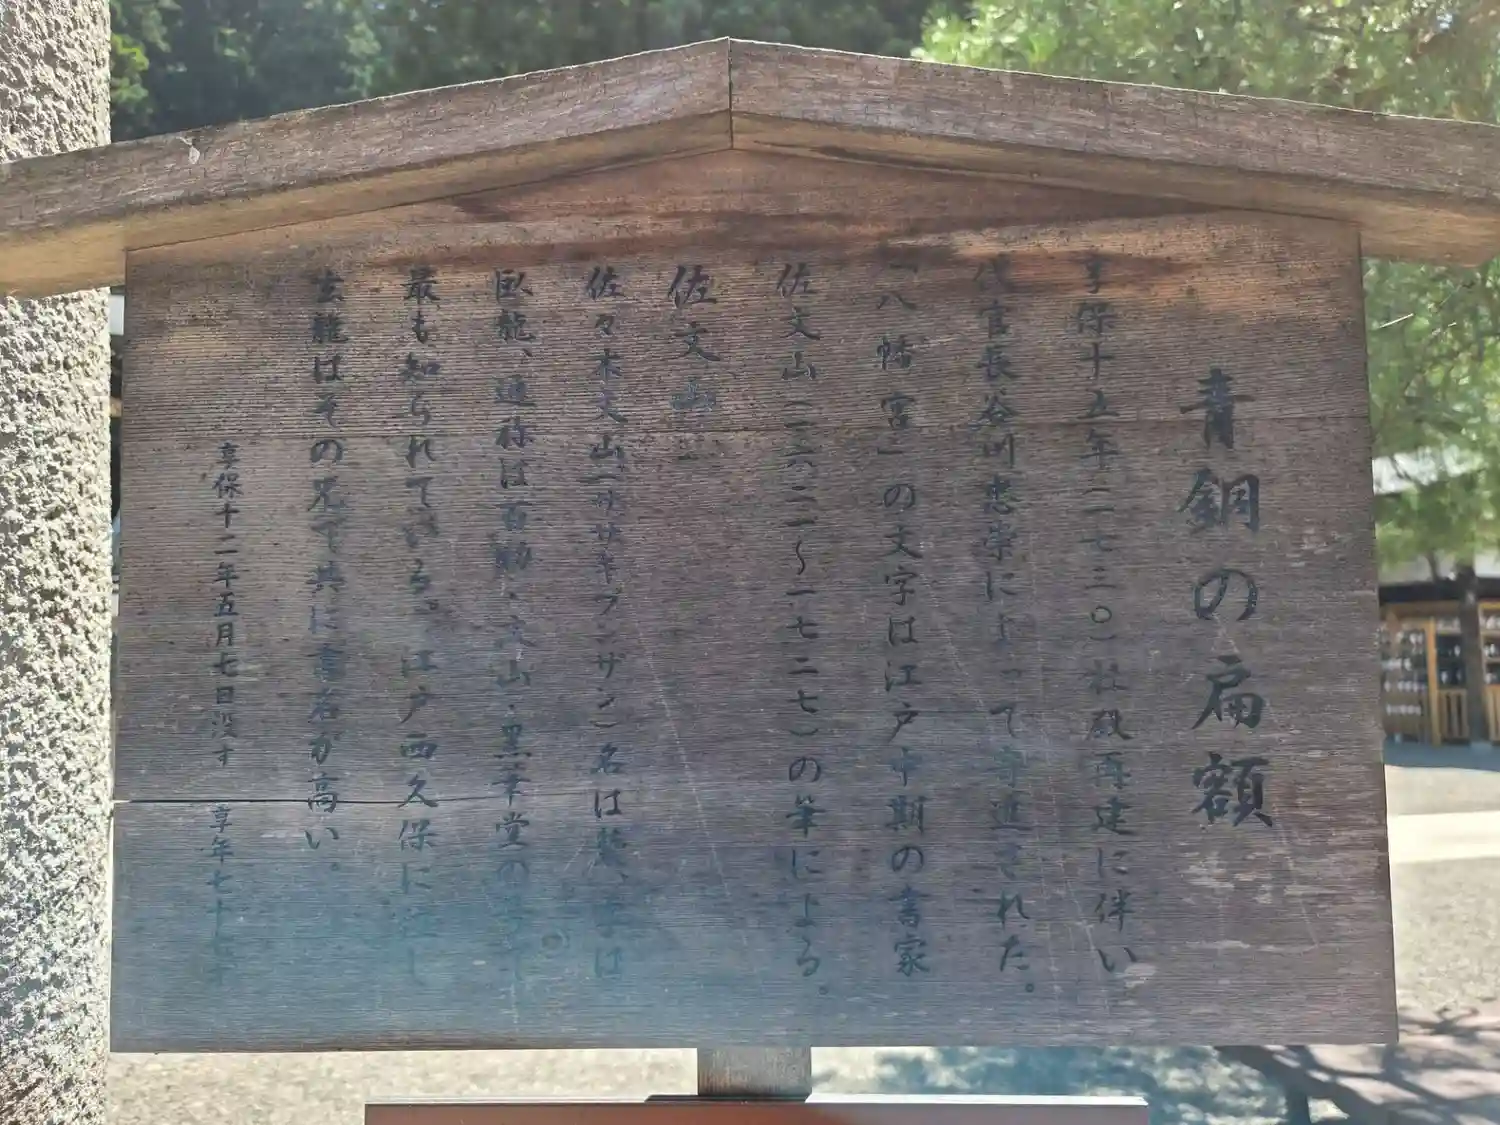 青銅の扁額
享保十五年(一七三〇)社殿再建に伴い
代官長谷川忠崇によって寄進された。
「八幡宮」の文字は江戸中期の書家
佐文山(一六二一〜一七二七)の筆による。
佐文山
佐々木文山(ササキブンザン)名は襲、字は
臥龍、通称は百助・文山・墨華堂の号で
最も知られている。江戸西久保に
玄龍はその兄で共に書名が高い。
享保十二年五月七日没す 享年七十